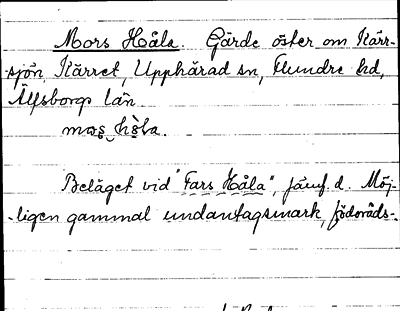 Mors Håla. Gärde öster om Kärr-
sjön Kärret, Upphärad sn, Flundre hd,
Älfsborgs län.
Beläget vid "Fars Håla", jämf. d. Möj-
-ligen gammal undantagsmark, födoråds-